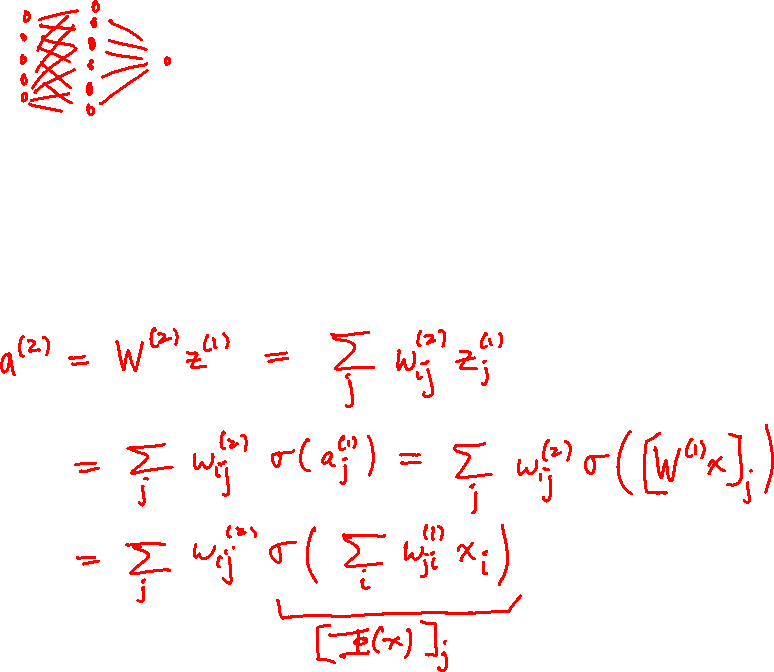 a^{(2)} = W^{(2)} z^{(1)} = \sum_j w_{ij}^{(2)} z_j^{(1)}
= \sum_j w_{ij}^{(2)} σ(a_j^{(1)}) = \sum_j w_{ij}^{(2)} σ([W^{(1)} x]_j)
= \sum_j w_{ij}^{(2)} σ(\sum_i w_{ji}^{(1)} x_i)
[Φ(x)]_j